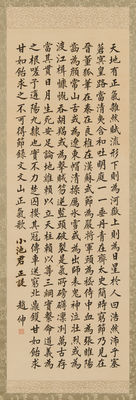 天地有正氣雜然賦流形下則為河嶽上則為日星於人曰浩然沛乎塞
蒼冥皇路當清夷含和吐明庭一一垂丹青在齊太史簡時窮節乃見在
晉董狐筆在秦張良椎在漢蘇武節為嚴將軍頭為嵇侍中血為張睢陽
齒為顏常山舌或為遼東帽清操厲冰雪或為出師表鬼神泣壯烈或為
渡江楫慷慨吞胡羯或為擊賊笏逆豎頭破裂是氣所磅礴凜冽萬古存
當其貫日月生死安足論地維賴以立天柱賴以尊三綱實繫命道義為
之根嗟予遘陽九隸也實不力楚囚纓其冠傳車送窮北鼎鑊
甘如飴求之不可得節錄文文山正氣歌
小池君正
趙伸